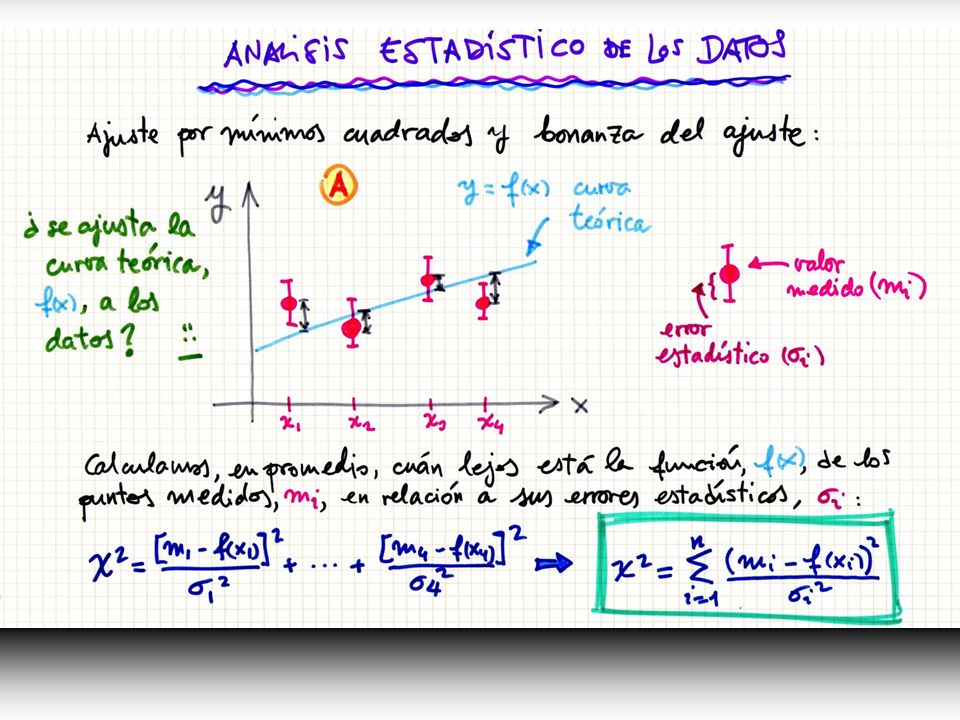 ANALISIS ESTADÍSTICO DE LOS DATOS
Ajuste por mínimos cuadrados y bonanza del ajuste:
¿ se ajusta la
curva teórica,
f(x), a los
datos?
y
A
y = f(x) curva
teórica
x
x₁ x₂ x₃ x₄
valor
medido (mᵢ)
error
estadístico (σᵢ)
Calculamos, en promedio, cuán lejos está la función, f(x), de los
puntos medidos, mᵢ, en relación a sus errores estadísticos, σᵢ:
χ² = [m₁ - f(x₁)]²/σ₁² + ... + [m₄ - f(x₄)]²/σ₄² ➡ χ² = Σᵢ₌₁ⁿ (mᵢ - f(xᵢ))²/σᵢ²